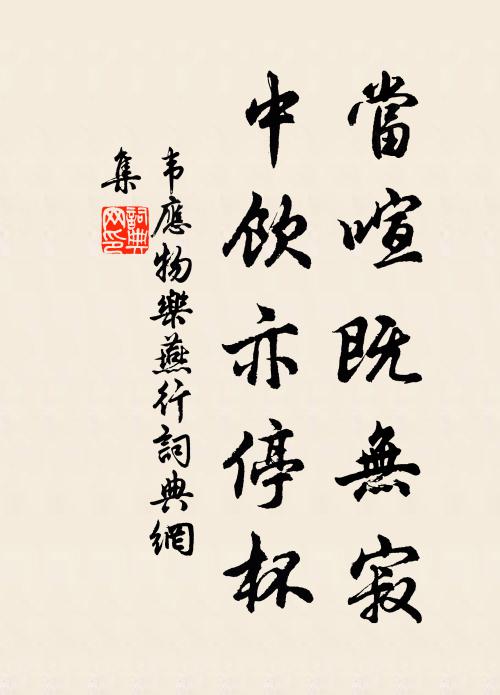 當喧既無寂
中飲亦停杯
韦應物樂燕行詞典網
集
詞典
网印